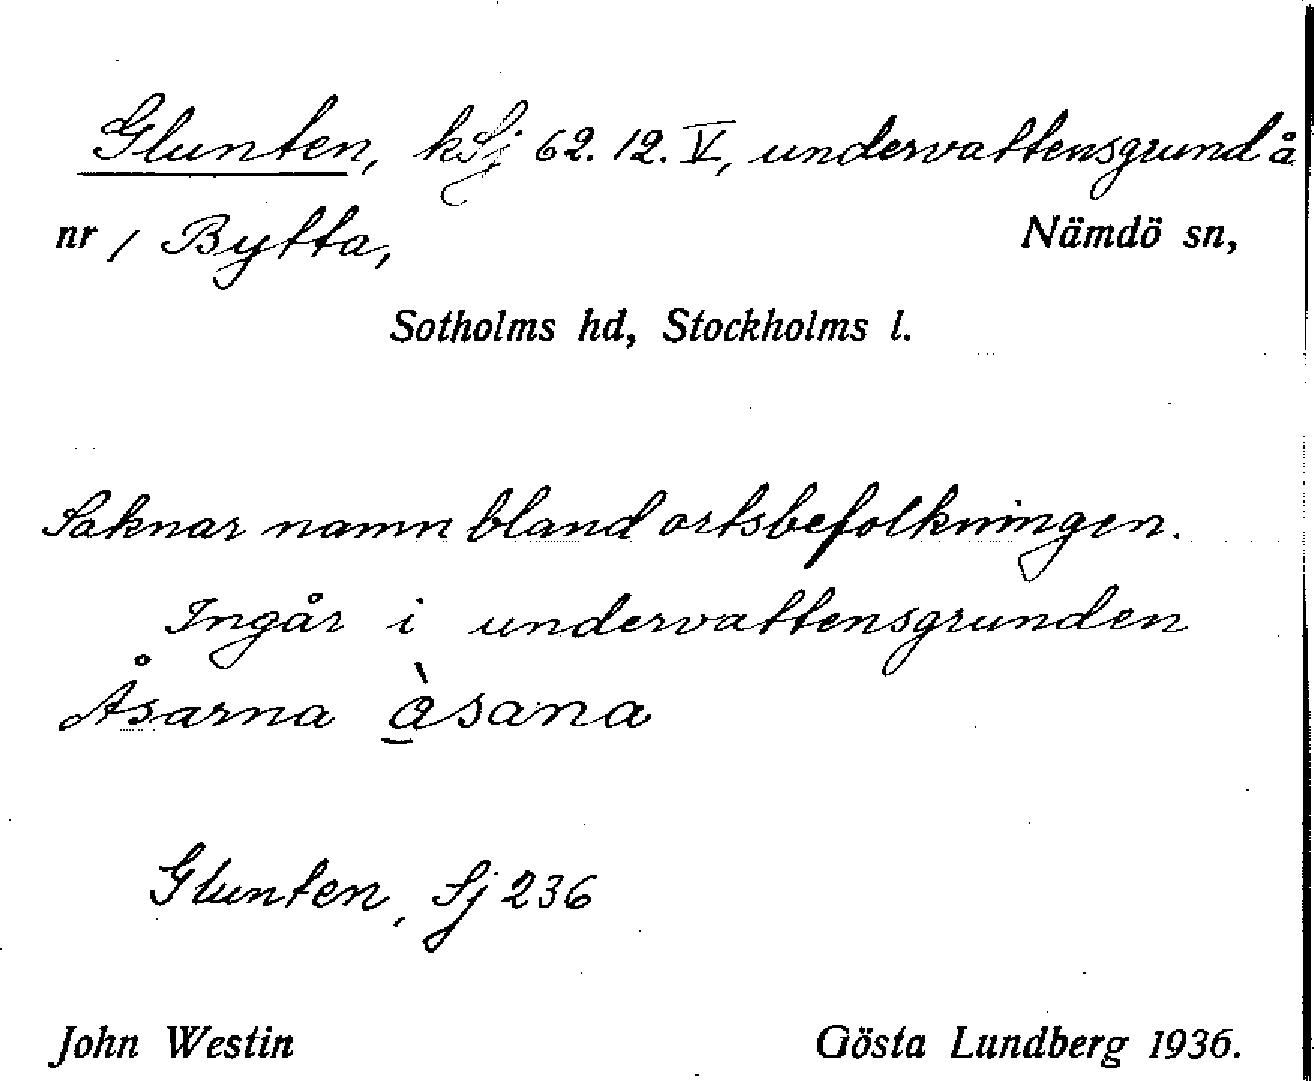 Glunten, kSj 62. 12. V, undervattensgrund å
nr 1 Bytta, Nämdö sn,
Sotholms hd, Stockholms l.
Saknar namn bland ortsbefolkningen.
Ingår i undervattensgrunden
Åsarna àsana
Glunten, Sj 236
John Westin Gösta Lundberg 1936.